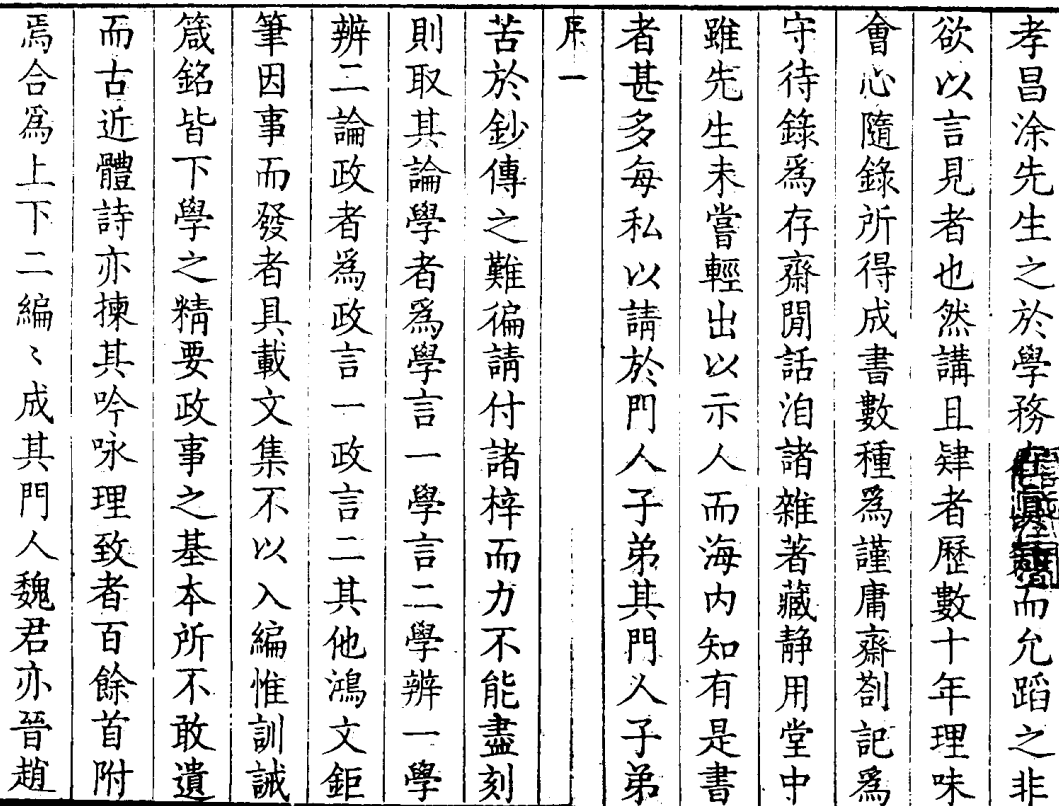 孝昌涂先生之於學務而允蹈之非
欲以言見者也然講且肄者歷數十年理味
會心隨錄所得成書數種爲謹庸齋劄記爲
守待錄爲存齋閒話洎諸雜著藏静用堂中
雖先生未嘗輕出以示人而海内知有是書
者甚多每私以請於門人子弟其門人子弟
序一
苦於鈔傳之難徧請付諸梓而力不能盡刻
則取其論學者爲學言一學言二學辨一學
辨二論政者爲政言一政言二其他鴻文鉅
筆因事而發者具載文集不以入編惟訓誡
箴銘皆下學之精要政事之基本所不敢遺
而古近體詩亦揀其吟咏理致者百餘首附
焉合爲上下二編〻成其門人魏君亦晉趙